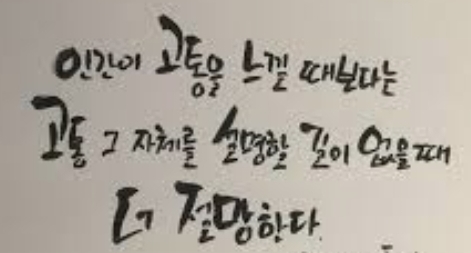 인간이 고통을 느낄 때보다는
고통 그 자체를 설명할 길이 없을 때
더 절망한다.